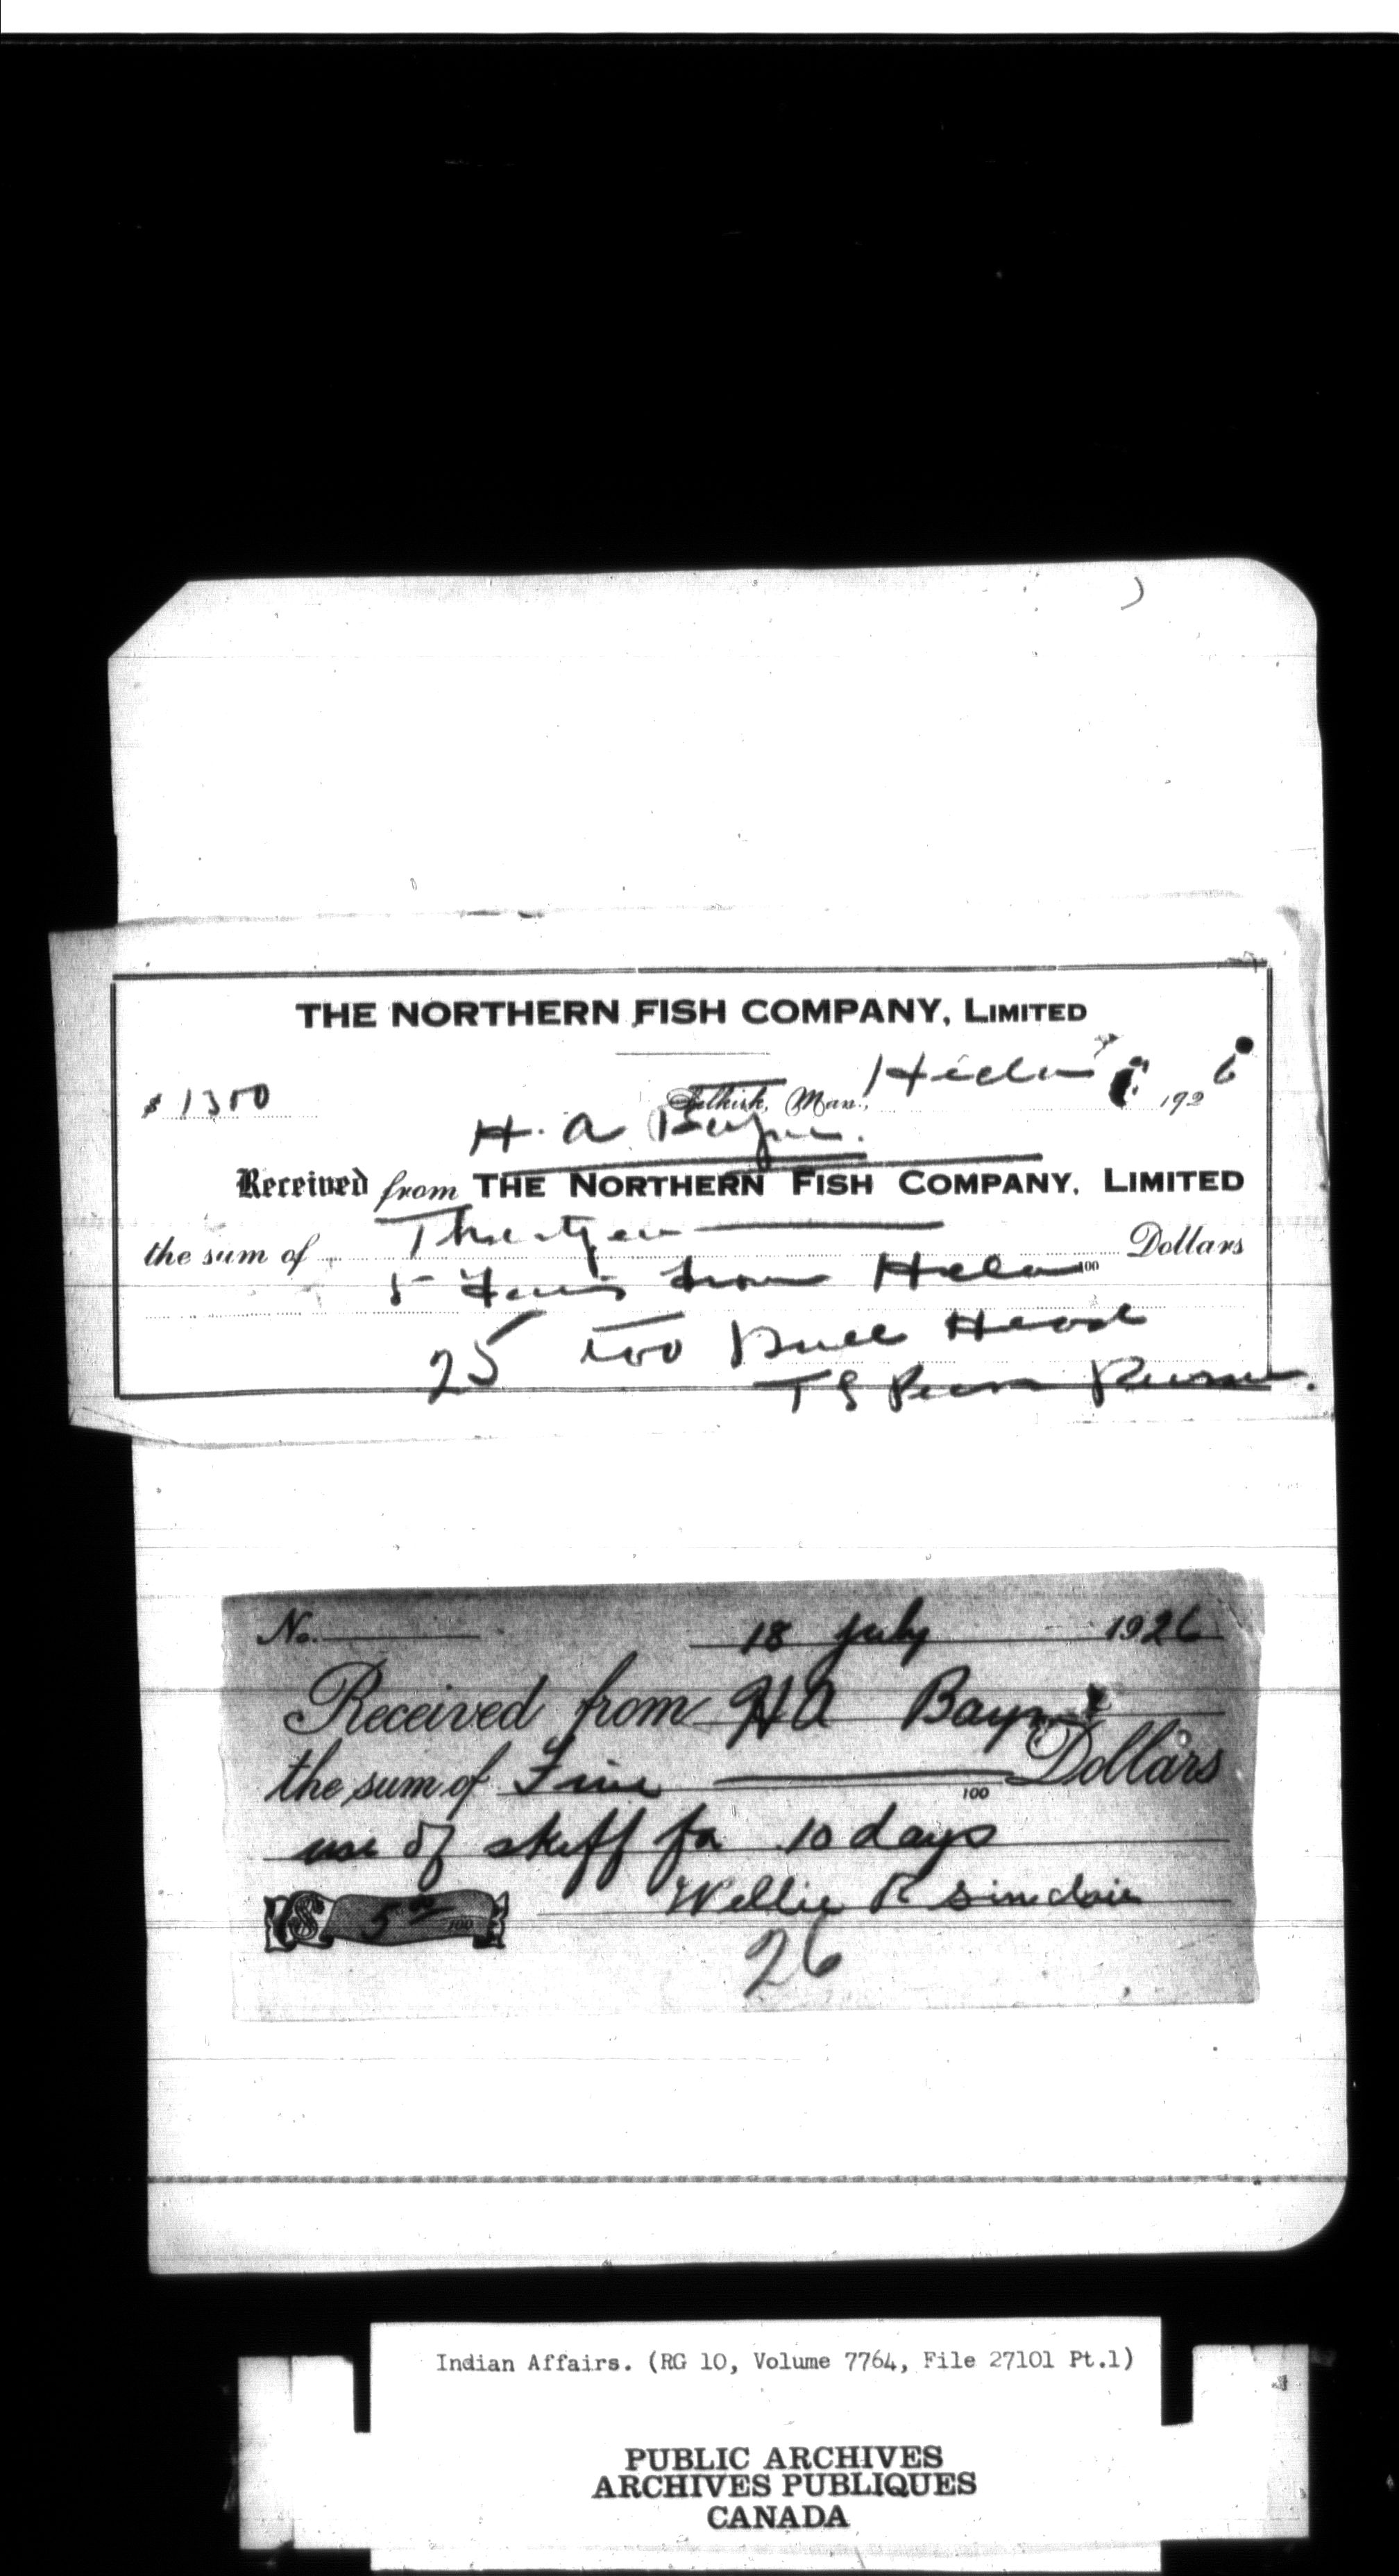 THE NORTHERN FISH COMPANY, LIMITED
$ 1300 Selkirk, Man., 192 6
H. A Bayne.
Received from THE NORTHERN FISH COMPANY, LIMITED
the sum of Thirteen Dollars
5 from 100
25 Bull Head
No. 18 July 1926
Received from HA Bayne
the sum of Five 100 Dollars
use of skiff for 10 days
$ 5 00 100 Willie R Sinclair
26
Indian Affairs. (RG 10, Volume 7764, File 27101 Pt.1)
PUBLIC ARCHIVES
ARCHIVES PUBLIQUES
CANADA